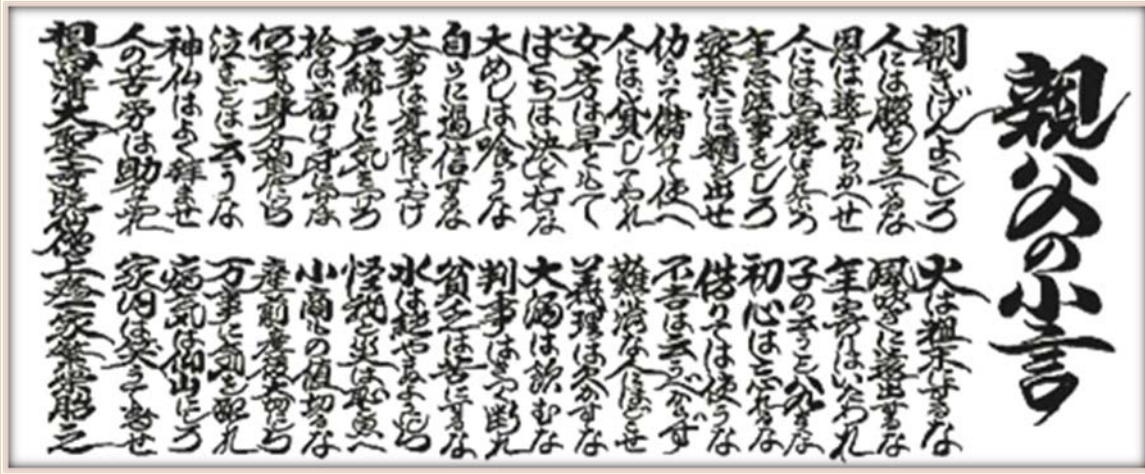 親父の小言
朝きげんよくしろ
人には腹を立てるな
恩は遠くからかへせ
人には馬鹿にされろ
年忌法事をしろ
家業には精を出せ
働いて儲けて使へ
人には貸してやれ
女房は早くもて
ばくちは決して打つな
大めしは喰うな
自らに過信するな
火事は覚悟しておけ
戸締りに気をつけろ
拾はば届け身につけるな
何事も身分相応にしろ
泣きごとは云うな
神仏はよく拝ませ
人の苦労は助けてやれ
火は粗末にするな
風吹きに遠出するな
年寄りはいたわれ
子の言うこと八九きくな
初心は忘れるな
借りては使うな
不吉は云うべからず
難渋な人にほどこせ
義理は欠かすな
大酒は飲むな
判事はきつく断れ
貧乏は苦にするな
水は絶やさぬようにしろ
怪我と災は恥と思へ
小商もの値切るな
産前産後大切にしろ
万事に気を配れ
病気は仰山にしろ
家内は笑うて暮せ
相馬藩大聖寺暁仙僧上